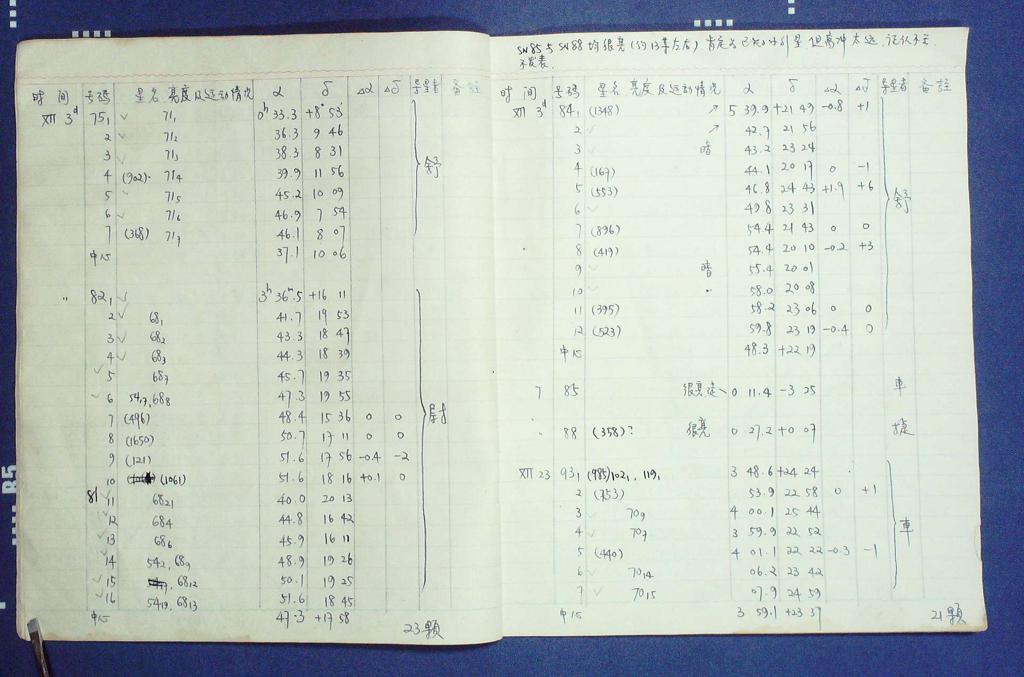 时间 号码 星名 亮度及运动情况 α δ Δα Δδ 导星者 备註
XII 3ᵈ 75₁ ✓ 71₁ 0ʰ 33.3 +8° 53′
2 ✓ 71₂ 36.3 9 46
3 ✓ 71₃ 38.3 8 31
4 (902)· 71₄ 39.9 11 56 舒
5 71₅ 45.2 10 09
6 ✓ 71₆ 46.9 7 54
7 (368) 71₇ 46.1 8 07
中心 37.1 10 06
" 82₁ ✓ 3ʰ 36ᵐ.5 +16 11
2 ✓ 68₁ 41.7 19 53
3 ✓ 68₂ 43.3 18 47
4 ✓ 68₃ 44.3 18 39
✓ 5 68₇ 45.7 19 35
✓ 6 54₁₇, 68₈ 47.3 19 55
7 (496) 48.4 15 36 0 0
8 (1650) 50.7 17 11 0 0
9 (121) 51.6 17 56 -0.4 -2
10 (1061) 51.6 18 16 +0.1 0
81 11 68₂₁ 40.0 20 13
✓ 12 68₄ 44.8 16 42
✓ 13 68₆ 45.9 16 11
14 54₂, 68₉ 48.9 19 26
✓ 15 68₁₂ 50.1 19 25
✓ 16 54₁₉, 68₁₃ 51.6 18 45
中心 47.3 +17 58
23颗
SN 85 与 SN 88 均很亮(约13等左右)肯定为已知小行星 但离冲太远,证认不出
不发表.
时间 号码 星名 亮度及运动情况 α δ Δα Δδ 导星者 备註
XII 3ᵈ 84₁ (1348) ↗ 5 39.9 +21 49 -0.8 +1
2 ✓ ↗ 42.7 21 56
3 ✓ 暗 43.2 23 24
4 (167) 44.1 20 17 0 -1
5 (553) 46.8 24 43 +1.9 +6 舒
6 ✓ 49.8 23 31
7 (896) 54.4 21 43 0 0
8 (419) 54.4 20 10 -0.2 +3
9 ✓ 暗 55.4 20 01
10 ✓ " 58.0 20 08
11 (395) 58.2 23 06 0 0
12 (523) 59.8 23 19 -0.4 0
中心 48.3 +22 19
7 85 很亮 0 11.4 -3 25 車
88 (358)? 很亮 0 27.2 +0 07
XII 23 93₁ (985)102₁, 119₁ 3 48.6 +24 24
2 (753) 53.9 22 58 0 +1
3 ✓ 70₉ 4 00.1 25 44
4 ✓ 70₇ 3 59.9 22 52 車
5 (440) 4 01.1 22 22 -0.3 -1
6 ✓ 70₁₄ 06.2 23 42
7 ✓ 70₁₅ 07.9 24 59
中心 3 59.1 +23 37
21颗